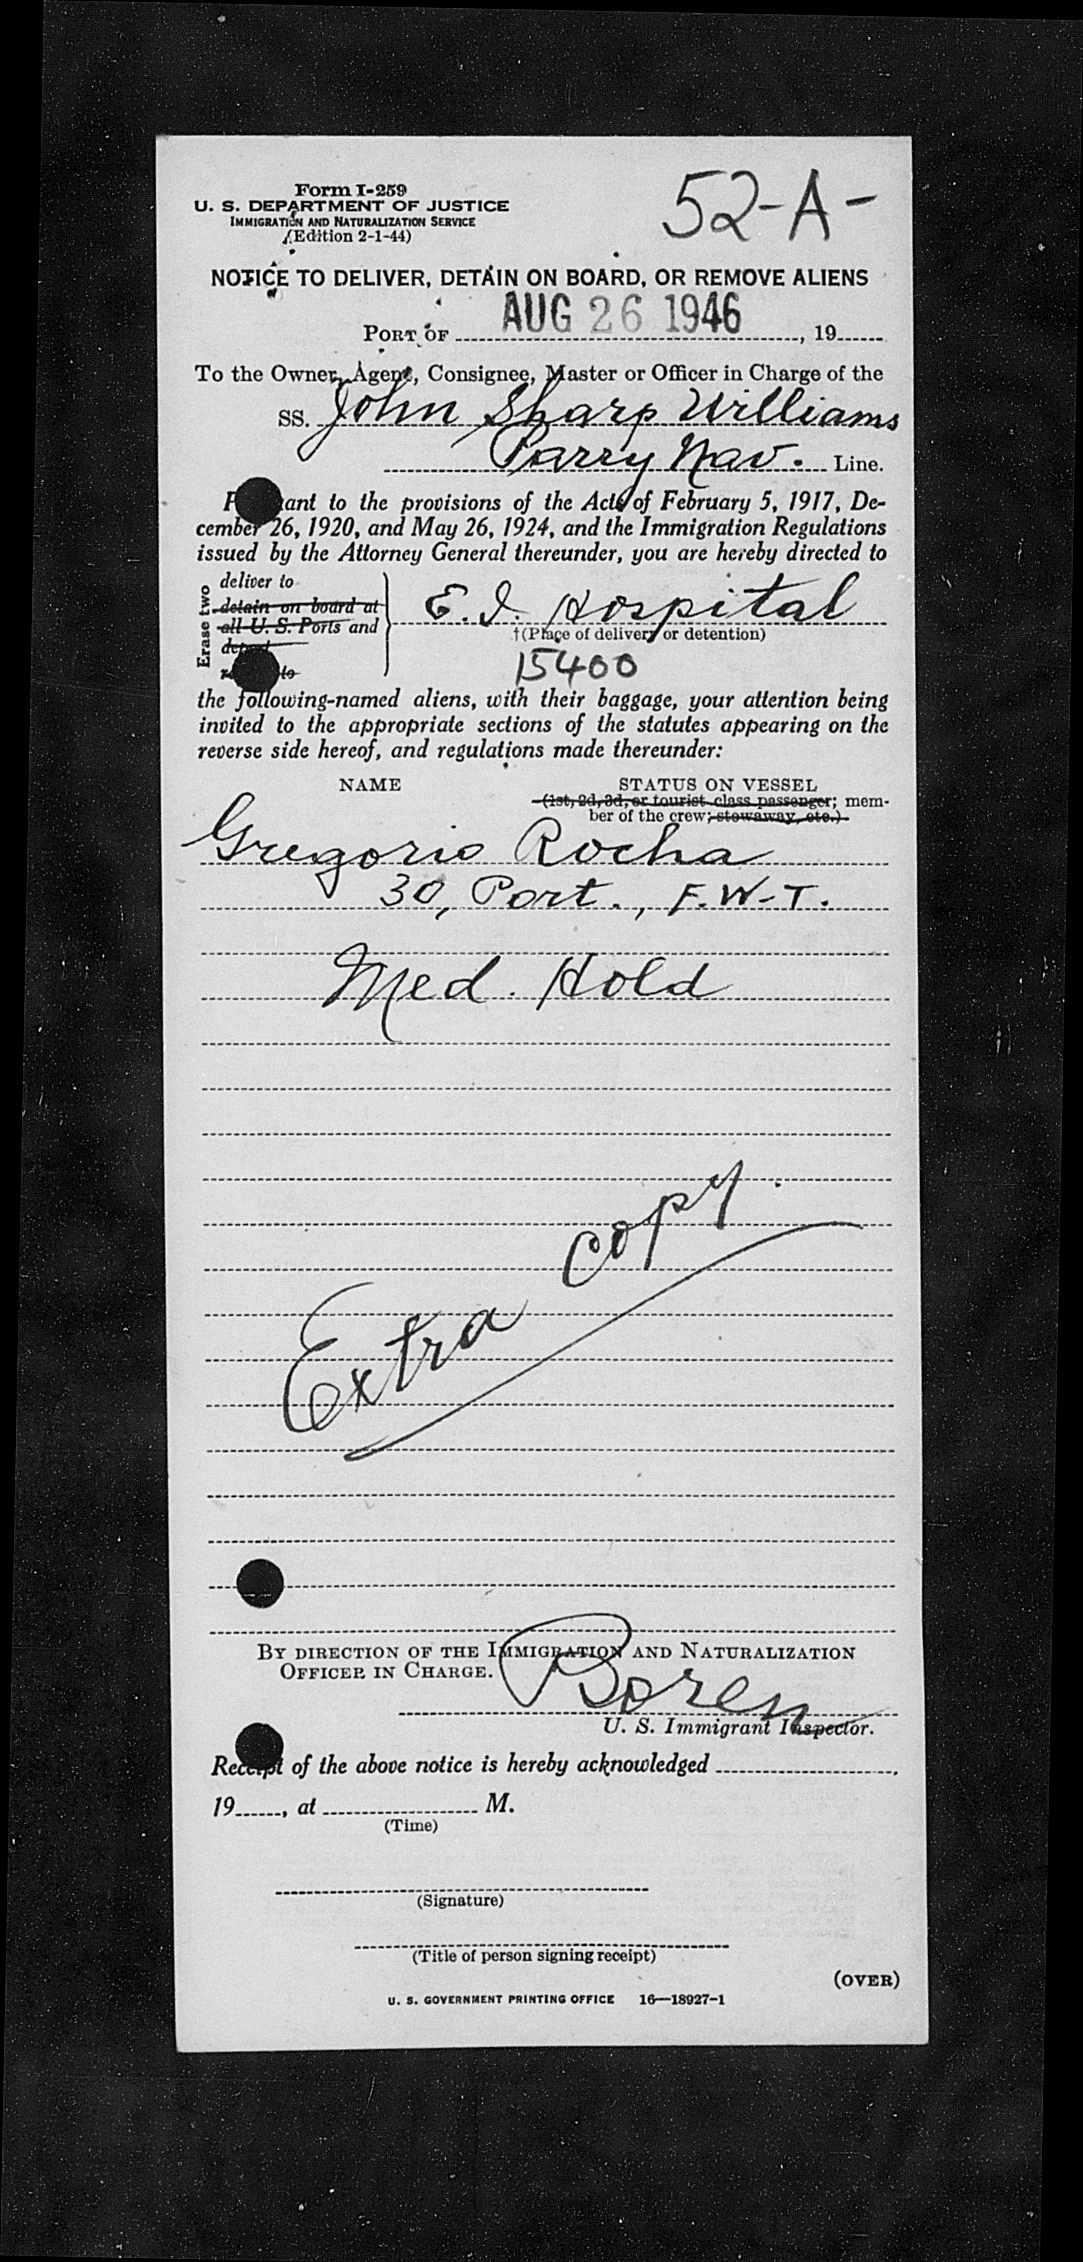 Form I-259
U. S. DEPARTMENT OF JUSTICE
IMMIGRATION AND NATURALIZATION SERVICE
(Edition 2-1-44)
52-A-
NOTICE TO DELIVER, DETAIN ON BOARD, OR REMOVE ALIENS
PORT OF AUG 26 1946, 19
To the Owner, Agent, Consignee, Master or Officer in Charge of the
SS. John Sharp Williams
Parry Nav. Line.
Pursuant to the provisions of the Acts of February 5, 1917, De-
cember 26, 1920, and May 26, 1924, and the Immigration Regulations
issued by the Attorney General thereunder, you are hereby directed to
Erase two
deliver to
detain on board at
all U. S. Ports and
deport
remove to
E. I. Hospital
†(Place of delivery or detention)
15400
the following-named aliens, with their baggage, your attention being
invited to the appropriate sections of the statutes appearing on the
reverse side hereof, and regulations made thereunder:
NAME STATUS ON VESSEL
(1st, 2d, 3d, or tourist class passenger; mem-
ber of the crew; stowaway, etc.)
Gregorio Rocha
30, Port., F.W-T.
Med. Hold
Extra copy
BY DIRECTION OF THE IMMIGRATION AND NATURALIZATION
OFFICER IN CHARGE.
Boren
U. S. Immigrant Inspector.
Receipt of the above notice is hereby acknowledged
19, at M.
(Time)
(Signature)
(Title of person signing receipt)
(OVER)
U. S. GOVERNMENT PRINTING OFFICE 16—18927-1